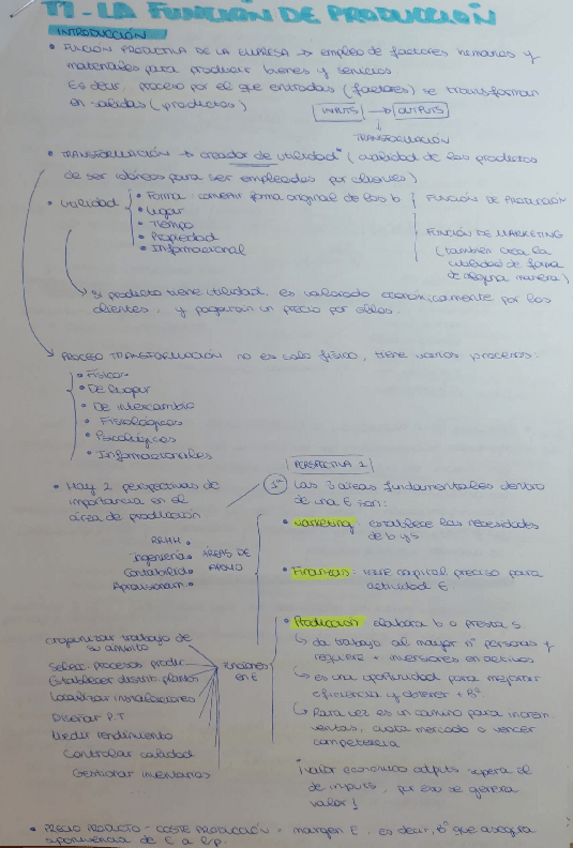 T1 - LA FUNCIÓN DE PRODUCCIÓN
INTRODUCCIÓN
• FUNCIÓN PRODUCTIVA DE LA EMPRESA → empleo de factores humanos y
materiales para producir bienes y servicios.
Es decir, proceso por el que entradas (factores) se transforman
en salidas (productos)
INPUTS → OUTPUTS
TRANSFORMACIÓN
• TRANSFORMACIÓN → creador de utilidad* (cualidad de los productos
de ser idóneos para ser empleados por clientes)
• Utilidad
• Forma: convertir forma original de los b
• Lugar
• Tiempo
• Propiedad
• Informacional
FUNCIÓN DE PRODUCCIÓN
FUNCIÓN DE MARKETING
(también crea la
utilidad de forma
de alguna manera)
Si producto tiene utilidad, es valorado económicamente por los
clientes, y pagarán un precio por ellos.
PROCESO TRANSFORMACIÓN no es solo físico, tiene varios procesos:
• Físicos
• De lugar
• De intercambio
• Fisiológicos
• Psicológicos
• Informacionales
• Hay 2 perspectivas de
importancia en el
área de producción
PERSPECTIVA 1
1ª Las 3 áreas fundamentales dentro
de una E son:
• Marketing: establece las necesidades
de b y s
• Finanzas: capital preciso para
actividad E.
RRHH •
Ingeniería •
Contabilidad •
Aprovisionam •
ÁREAS DE
APOYO
• Producción: elabora b o presta s
↳ da trabajo al mayor nº personas y
requiere + inversiones en activos
↳ es una oportunidad para mejorar
eficiencia y obtener + Bº
↳ a la vez es un camino para increm
ventas, cuota mercado o vencer
competencia
organizar trabajo de
su ámbito
Selecc. procesos produc.
Establecer distrib planta
Localizar instalaciones
Diseñar P.T
Medir rendimiento
Controlar calidad
Gestionar inventarios
Funciones
en E
¡valor económico outputs supera el
de inputs, por eso se genera
valor!
• PRECIO PRODUCTO - COSTE PRODUCCIÓN = margen E, es decir, bº que asegura
supervivencia de E a l/p.